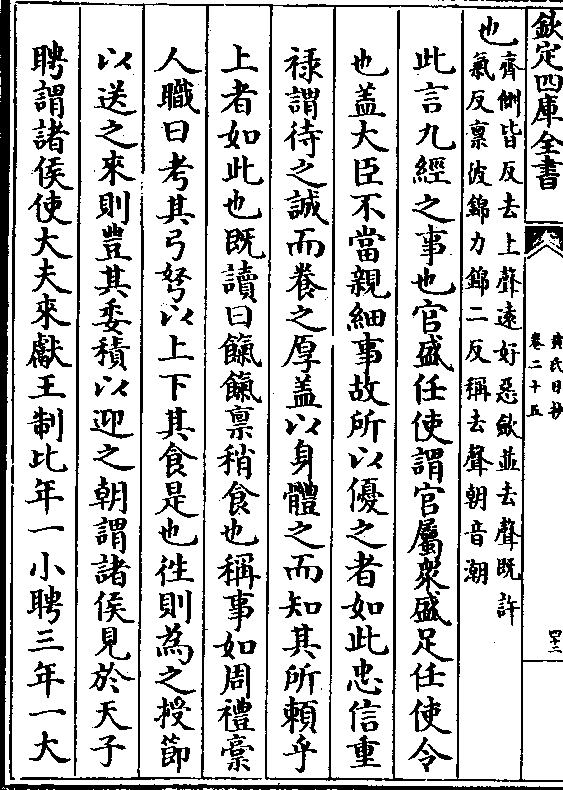 欽定四庫全書
黄氏日抄
卷二十五
四十二
也
齊側皆反去上聲遠好惡斂並去聲既許
氣反禀波錦力錦二反稱去聲朝音潮
此言九經之事也官盛任使謂官屬衆盛足任使令
也盖大臣不當親細事故所以優之者如此忠信重
禄謂待之誠而養之厚盖以身體之而知其所賴乎
上者如此也既讀曰餼餼禀稍食也稱事如周禮槀
人職曰考其弓弩以上下其食是也徃則為之授節
以送之來則豐其委積以迎之朝謂諸侯見於天子
聘謂諸侯使大夫來獻王制比年一小聘三年一大